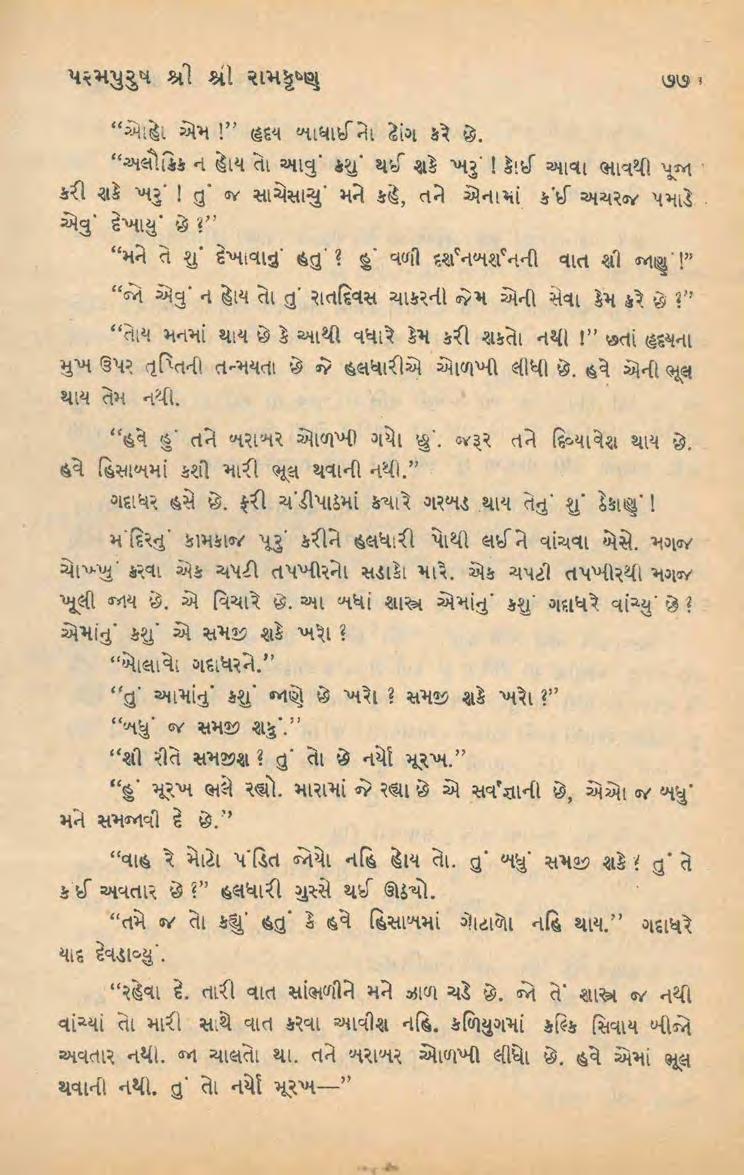 પરમપુરુષ શ્રી શ્રી રામકૃષ્ણ ૭૭
“ઓહો એમ !” હૃદય બાઘાઈનો ઢોંગ કરે છે.
“અલૌકિક ન હોય તો આવું કશું થઈ શકે ખરું ! કોઈ આવા ભાવથી પૂજા
કરી શકે ખરું ! તું જ સાચેસાચું મને કહે, તને એનામાં કંઈ અચરજ પમાડે
એવું દેખાયું છે ?”
“મને તે શું દેખાવાનું હતું ? હું વળી દર્શનબર્શનની વાત શી જાણું !”
“જો એવું ન હોય તો તું રાતદિવસ ચાકરની જેમ એની સેવા કેમ કરે છે ?”
“તોય મનમાં થાય છે કે આથી વધારે કેમ કરી શકતો નથી !” છતાં હૃદયના
મુખ ઉપર તૃપ્તિની તન્મયતા છે જે હલધારીએ ઓળખી લીધી છે. હવે એની ભૂલ
થાય તેમ નથી.
“હવે હું તને બરાબર ઓળખી ગયો છું. જરૂર તને દિવ્યાવેશ થાય છે.
હવે હિસાબમાં કશી મારી ભૂલ થવાની નથી.”
ગદાધર હસે છે. ફરી ચંડીપાઠમાં ક્યારે ગરબડ થાય તેનું શું ઠેકાણું !
મંદિરનું કામકાજ પૂરું કરીને હલધારી પોથી લઈને વાંચવા બેસે. મગજ
ચોખ્ખું કરવા એક ચપટી તપખીરનો સડાકો મારે. એક ચપટી તપખીરથી મગજ
ખૂલી જાય છે. એ વિચારે છે. આ બધાં શાસ્ત્ર એમાંનું કશું ગદાધરે વાંચ્યું છે ?
એમાંનું કશું એ સમજી શકે ખરો ?
“બોલાવો ગદાધરને.”
“તું આમાંનું કશું જાણે છે ખરો ? સમજી શકે ખરો ?”
“બધું જ સમજી શકું.”
“શી રીતે સમજીશ ? તું તો છે નર્યો મૂરખ.”
“હું મૂરખ ભલે રહ્યો. મારામાં જે રહ્યા છે એ સર્વજ્ઞાની છે, એઓ જ બધું
મને સમજાવી દે છે.”
“વાહ રે મોટો પંડિત જોયો નહિ હોય તો. તું બધું સમજી શકે ? તું તે
કંઈ અવતાર છે ?” હલધારી ગુસ્સે થઈ ઊઠ્યો.
“તમે જ તો કહ્યું હતું કે હવે હિસાબમાં ગોટાળો નહિ થાય.” ગદાધરે
યાદ દેવડાવ્યું.
“રહેવા દે. તારી વાત સાંભળીને મને ઝાળ ચડે છે. જો તેં શાસ્ત્ર જ નથી
વાંચ્યાં તો મારી સાથે વાત કરવા આવીશ નહિ. કળિયુગમાં કલ્કિ સિવાય બીજો
અવતાર નથી. જા ચાલતો થા. તને બરાબર ઓળખી લીધો છે. હવે એમાં ભૂલ
થવાની નથી. તું તો નર્યો મૂરખ—”